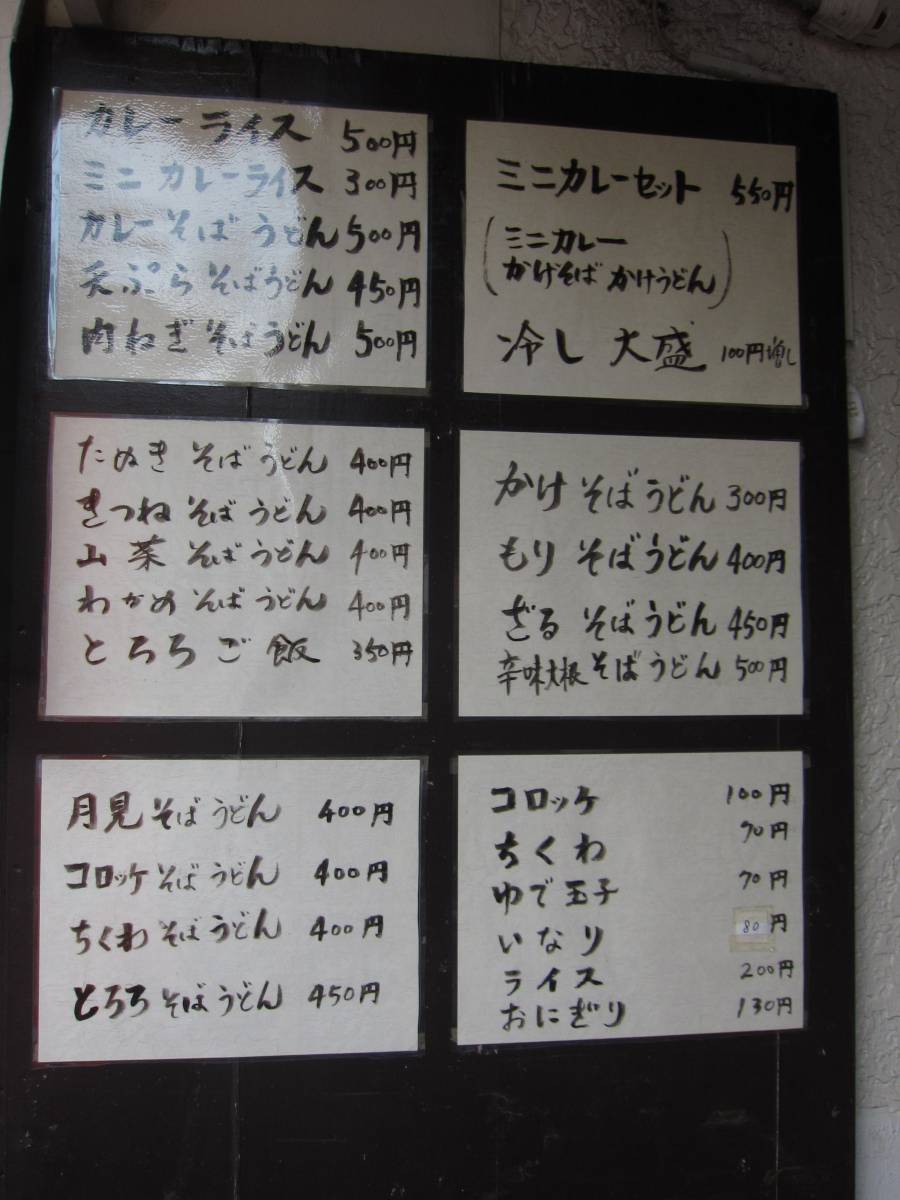 カレーライス 500円
ミニカレーライス 300円
カレーそばうどん 500円
天ぷらそばうどん 450円
肉ねぎそばうどん 500円
ミニカレーセット 550円
(ミニカレー
かけそば かけうどん)
冷し 大盛 100円増し
たぬき そば うどん 400円
きつね そば うどん 400円
山菜 そば うどん 400円
わかめ そば うどん 400円
とろろご飯 350円
かけ そば うどん 300円
もり そば うどん 400円
ざる そば うどん 450円
辛味大根 そば うどん 500円
月見 そば うどん 400円
コロッケ そば うどん 400円
ちくわ そば うどん 400円
とろろ そば うどん 450円
コロッケ 100円
ちくわ 70円
ゆで玉子 70円
いなり 80円
ライス 200円
おにぎり 130円